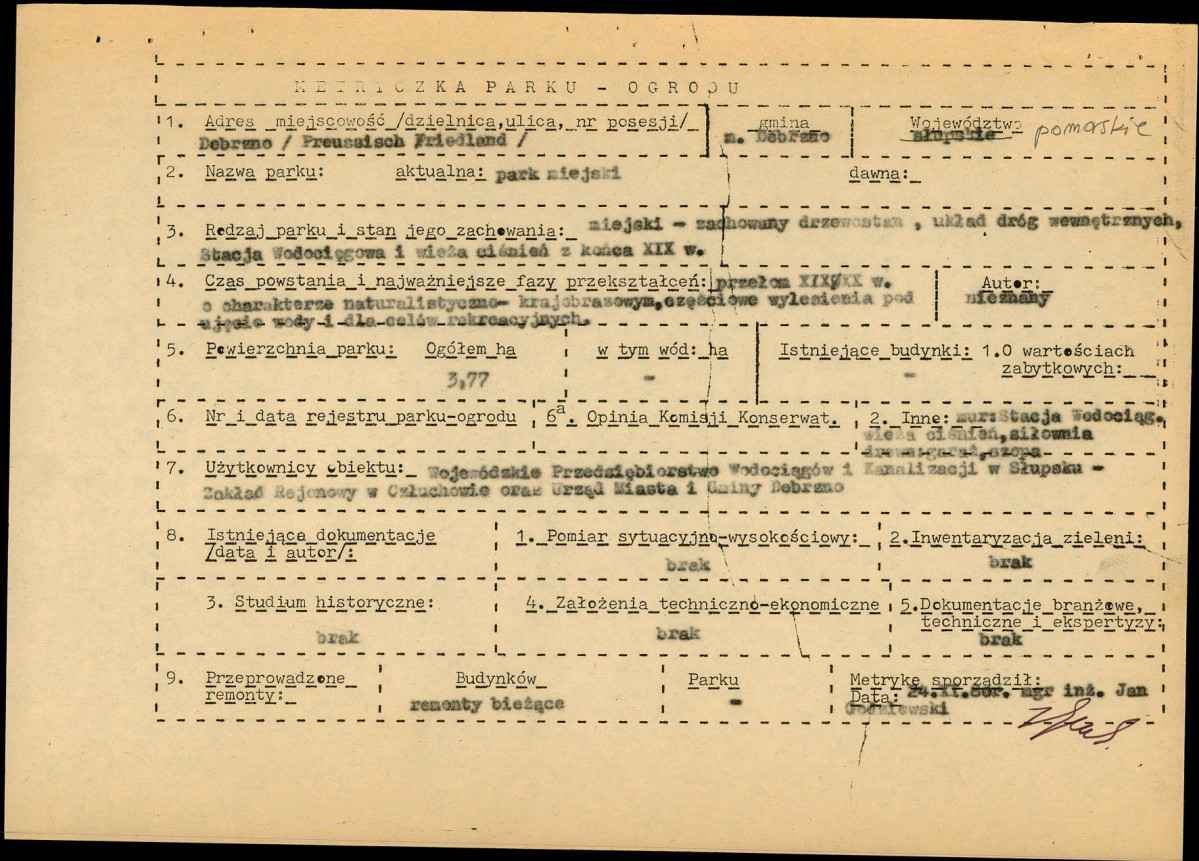 METRYCZKA PARKU - OGRODU
1. Adres miejscowość /dzielnica,ulica, nr posesji/ gmina Województwo
Debrzno / Preussisch Friedland / m. Debrzno słupskie pomorskie
2. Nazwa parku: aktualna: park miejski dawna:
3. Rodzaj parku i stan jego zachowania: miejski - zachowany drzewostan , układ dróg wewnętrznych,
Stacja Wodociągowa i wieża ciśnień z końca XIX w.
4. Czas powstania i najważniejsze fazy przekształceń: przełom XIX/XX w. Autor:
o charakterze naturalistyczno- krajobrazowym,częściowe wylesienia pod nieznany
ujęcie wody i dla celów rekreacyjnych.
5. Powierzchnia parku: Ogółem ha w tym wód: ha Istniejące budynki: 1.O wartościach
zabytkowych:
3,77 - -
6. Nr i data rejestru parku-ogrodu 6a. Opinia Komisji Konserwat. 2. Inne: mur:Stacja Wodociąg.
wieża ciśnień,siłownia
drewn:garaż,szopa
7. Użytkownicy obiektu: Wojewódzkie Przedsiębiorstwo Wodociągów i Kanalizacji w Słupsku -
Zakład Rejonowy w Człuchowie oraz Urząd Miasta i Gminy Debrzno
8. Istniejące dokumentacje 1. Pomiar sytuacyjno-wysokościowy: 2.Inwentaryzacja zieleni:
/data i autor/: brak brak
3. Studium historyczne: 4. Założenia techniczno-ekonomiczne 5.Dokumentacje branżowe,
techniczne i ekspertyzy:
brak brak brak
9. Przeprowadzone Budynków Parku Metrykę sporządził:
remonty: remonty bieżące - Data: 24.XI.80r. mgr inż. Jan